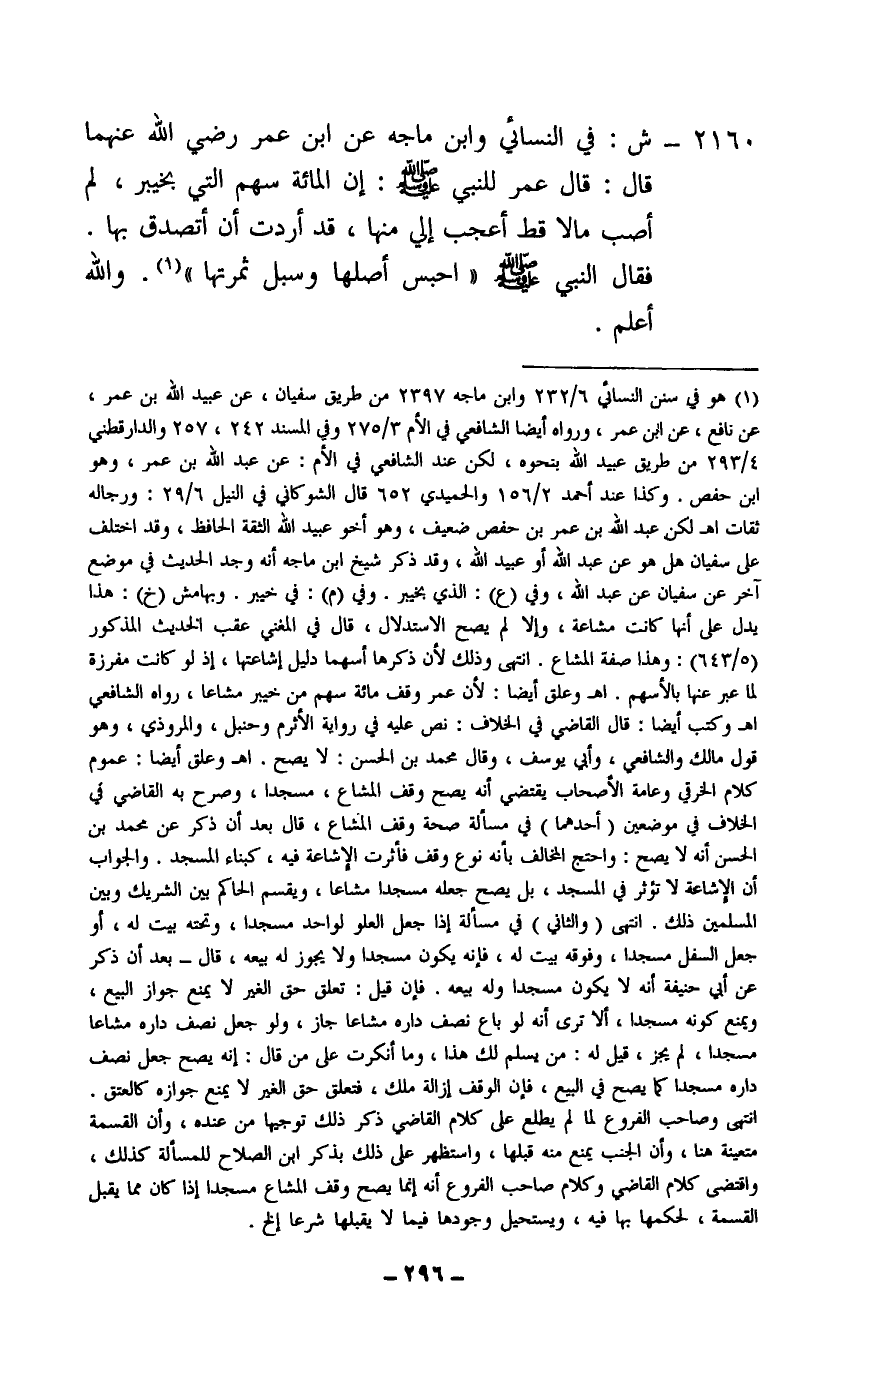 ٢١٦٠ ـ ش : في النسائي وابن ماجه عن ابن عمر رضي الله عنهما
قال : قال عمر للنبي ﷺ : إن المائة سهم التي بخيبر ، لم
أصب مالا قط أعجب إلي منها ، قد أردت أن أتصدق بها .
فقال النبي ﷺ « احبس أصلها وسبل ثمرتها »(١) . والله
أعلم .
(١) هو في سنن النسائي ٢٣٢/٦ وابن ماجه ٢٣٩٧ من طريق سفيان ، عن عبيد الله بن عمر ،
عن نافع ، عن ابن عمر ، ورواه أيضا الشافعي في الأم ٢٧٥/٣ وفي المسند ٢٤٢ ، ٢٥٧ والدارقطني
٢٩٣/٤ من طريق عبيد الله بنحوه ، لكن عند الشافعي في الأم : عن عبد الله بن عمر ، وهو
ابن حفص . وكذا عند أحمد ١٥٦/٢ والحميدي ٦٥٢ قال الشوكاني في النيل ٢٩/٦ : ورجاله
ثقات اهـ لكن عبد الله بن عمر بن حفص ضعيف ، وهو أخو عبيد الله الثقة الحافظ ، وقد اختلف
على سفيان هل هو عن عبد الله أو عبيد الله ، وقد ذكر شيخ ابن ماجه أنه وجد الحديث في موضع
آخر عن سفيان عن عبد الله ، وفي (ع) : الذي بخيبر . وفي (م) : في خيبر . وبهامش (خ) : هذا
يدل على أنها كانت مشاعة ، وإلا لم يصح الاستدلال ، قال في المغني عقب الحديث المذكور
(٦٤٣/٥) : وهذا صفة المشاع . انتهى وذلك لأن ذكرها أسهما دليل إشاعتها ، إذ لو كانت مفرزة
لما عبر عنها بالأسهم . اهـ وعلق أيضا : لأن عمر وقف مائة سهم من خيبر مشاعا ، رواه الشافعي
اهـ وكتب أيضا : قال القاضي في الخلاف : نص عليه في رواية الأثرم وحنبل ، والمروذي ، وهو
قول مالك والشافعي ، وأبي يوسف ، وقال محمد بن الحسن : لا يصح . اهـ وعلق أيضا : عموم
كلام الخرقي وعامة الأصحاب يقتضي أنه يصح وقف المشاع ، مسجدا ، وصرح به القاضي في
الخلاف في موضعين ( أحدهما ) في مسألة صحة وقف المشاع ، قال بعد أن ذكر عن محمد بن
الحسن أنه لا يصح : واحتج المخالف بأنه نوع وقف فأثرت الإشاعة فيه ، كبناء المسجد . والجواب
أن الإشاعة لا تؤثر في المسجد ، بل يصح جعله مسجدا مشاعا ، ويقسم الحاكم بين الشريك وبين
المسلمين ذلك . انتهى ( والثاني ) في مسألة إذا جعل العلو لواحد مسجدا ، وتحته بيت له ، أو
جعل السفل مسجدا ، وفوقه بيت له ، فإنه يكون مسجدا ولا يجوز له بيعه ، قال ـ بعد أن ذكر
عن أبي حنيفة أنه لا يكون مسجدا وله بيعه . فإن قيل : تعلق حق الغير لا يمنع جواز البيع ،
ويمنع كونه مسجدا ، ألا ترى أنه لو باع نصف داره مشاعا جاز ، ولو جعل نصف داره مشاعا
مسجدا ، لم يجز ، قيل له : من يسلم لك هذا ، وما أنكرت على من قال : إنه يصح جعل نصف
داره مسجدا كما يصح في البيع ، فإن الوقف إزالة ملك ، فتعلق حق الغير لا يمنع جوازه كالعتق .
انتهى وصاحب الفروع لما لم يطلع على كلام القاضي ذكر ذلك توجيها من عنده ، وأن القسمة
متعينة هنا ، وأن الجنب يمنع منه قبلها ، واستظهر على ذلك بذكر ابن الصلاح للمسألة كذلك ،
واقتضى كلام القاضي وكلام صاحب الفروع أنه إنما يصح وقف المشاع مسجدا إذا كان مما يقبل
القسمة ، لحكمها بها فيه ، ويستحيل وجودها فيما لا يقبلها شرعا إلخ .
ـ ٢٩٦ ـ